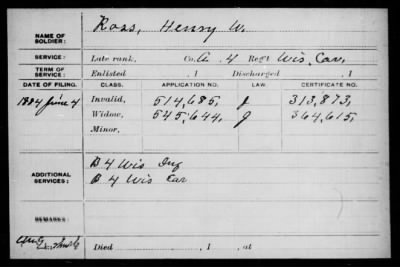 NAME OF SOLDIER: Ross, Henry W.
SERVICE: Late rank, Co. A. 4 Reg't Wis. Cav.
TERM OF SERVICE: Enlisted , 1 Discharged , 1
DATE OF FILING. CLASS. APPLICATION NO. LAW. CERTIFICATE NO.
1884 June 4 Invalid, 514,685, J 313,873,
Widow, 545,644, J 364,615,
Minor,
ADDITIONAL SERVICES: B 4 Wis Inf
B 4 Wis Cav
REMARKS:
Died , 1 , at